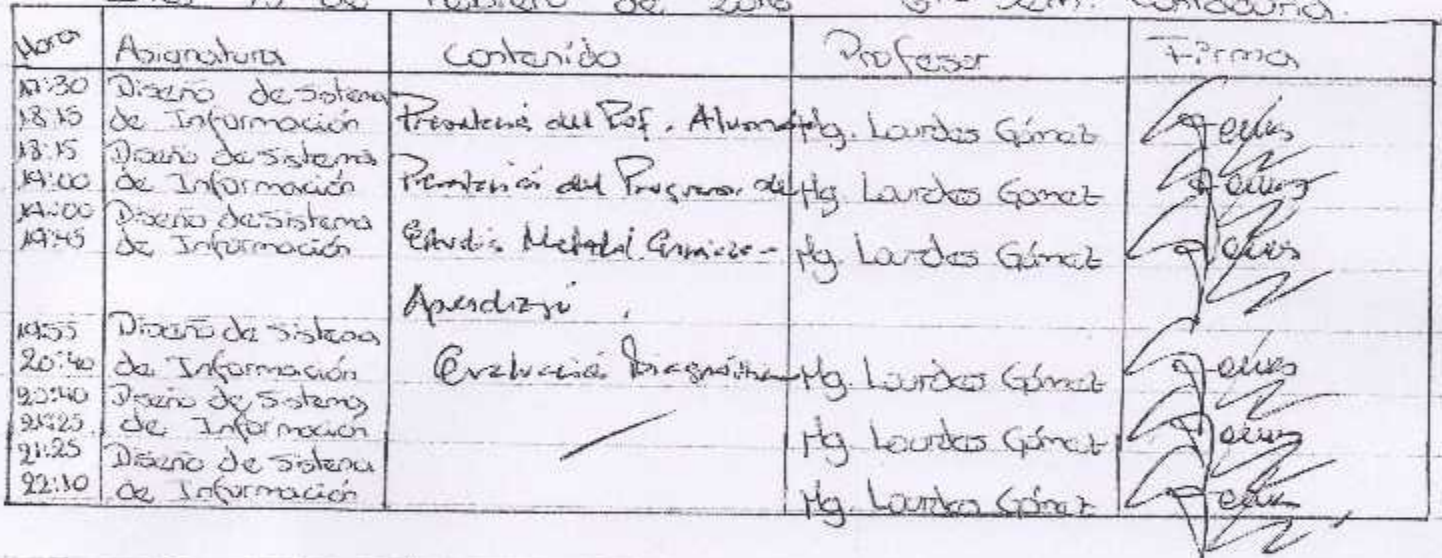 de Febrero de Contaduría.
Hora Asignatura Contenido Profesor Firma
17:30 Diseño de Sistema
18:15 de Información Presentación del Prof. Alumnos Mg. Lourdes Gómez
18:15 Diseño de Sistema
19:00 de Información Presentación del Programa de Mg. Lourdes Gómez
19:00 Diseño de Sistema
19:45 de Información Estudio Mg. Lourdes Gómez
Aprendizaje.
19:55 Diseño de Sistema
20:40 de Información Evaluación Diagnóstica Mg. Lourdes Gómez
20:40 Diseño de Sistema
21:25 de Información Mg. Lourdes Gómez
21:25 Diseño de Sistema
22:10 de Información Mg. Lourdes Gómez